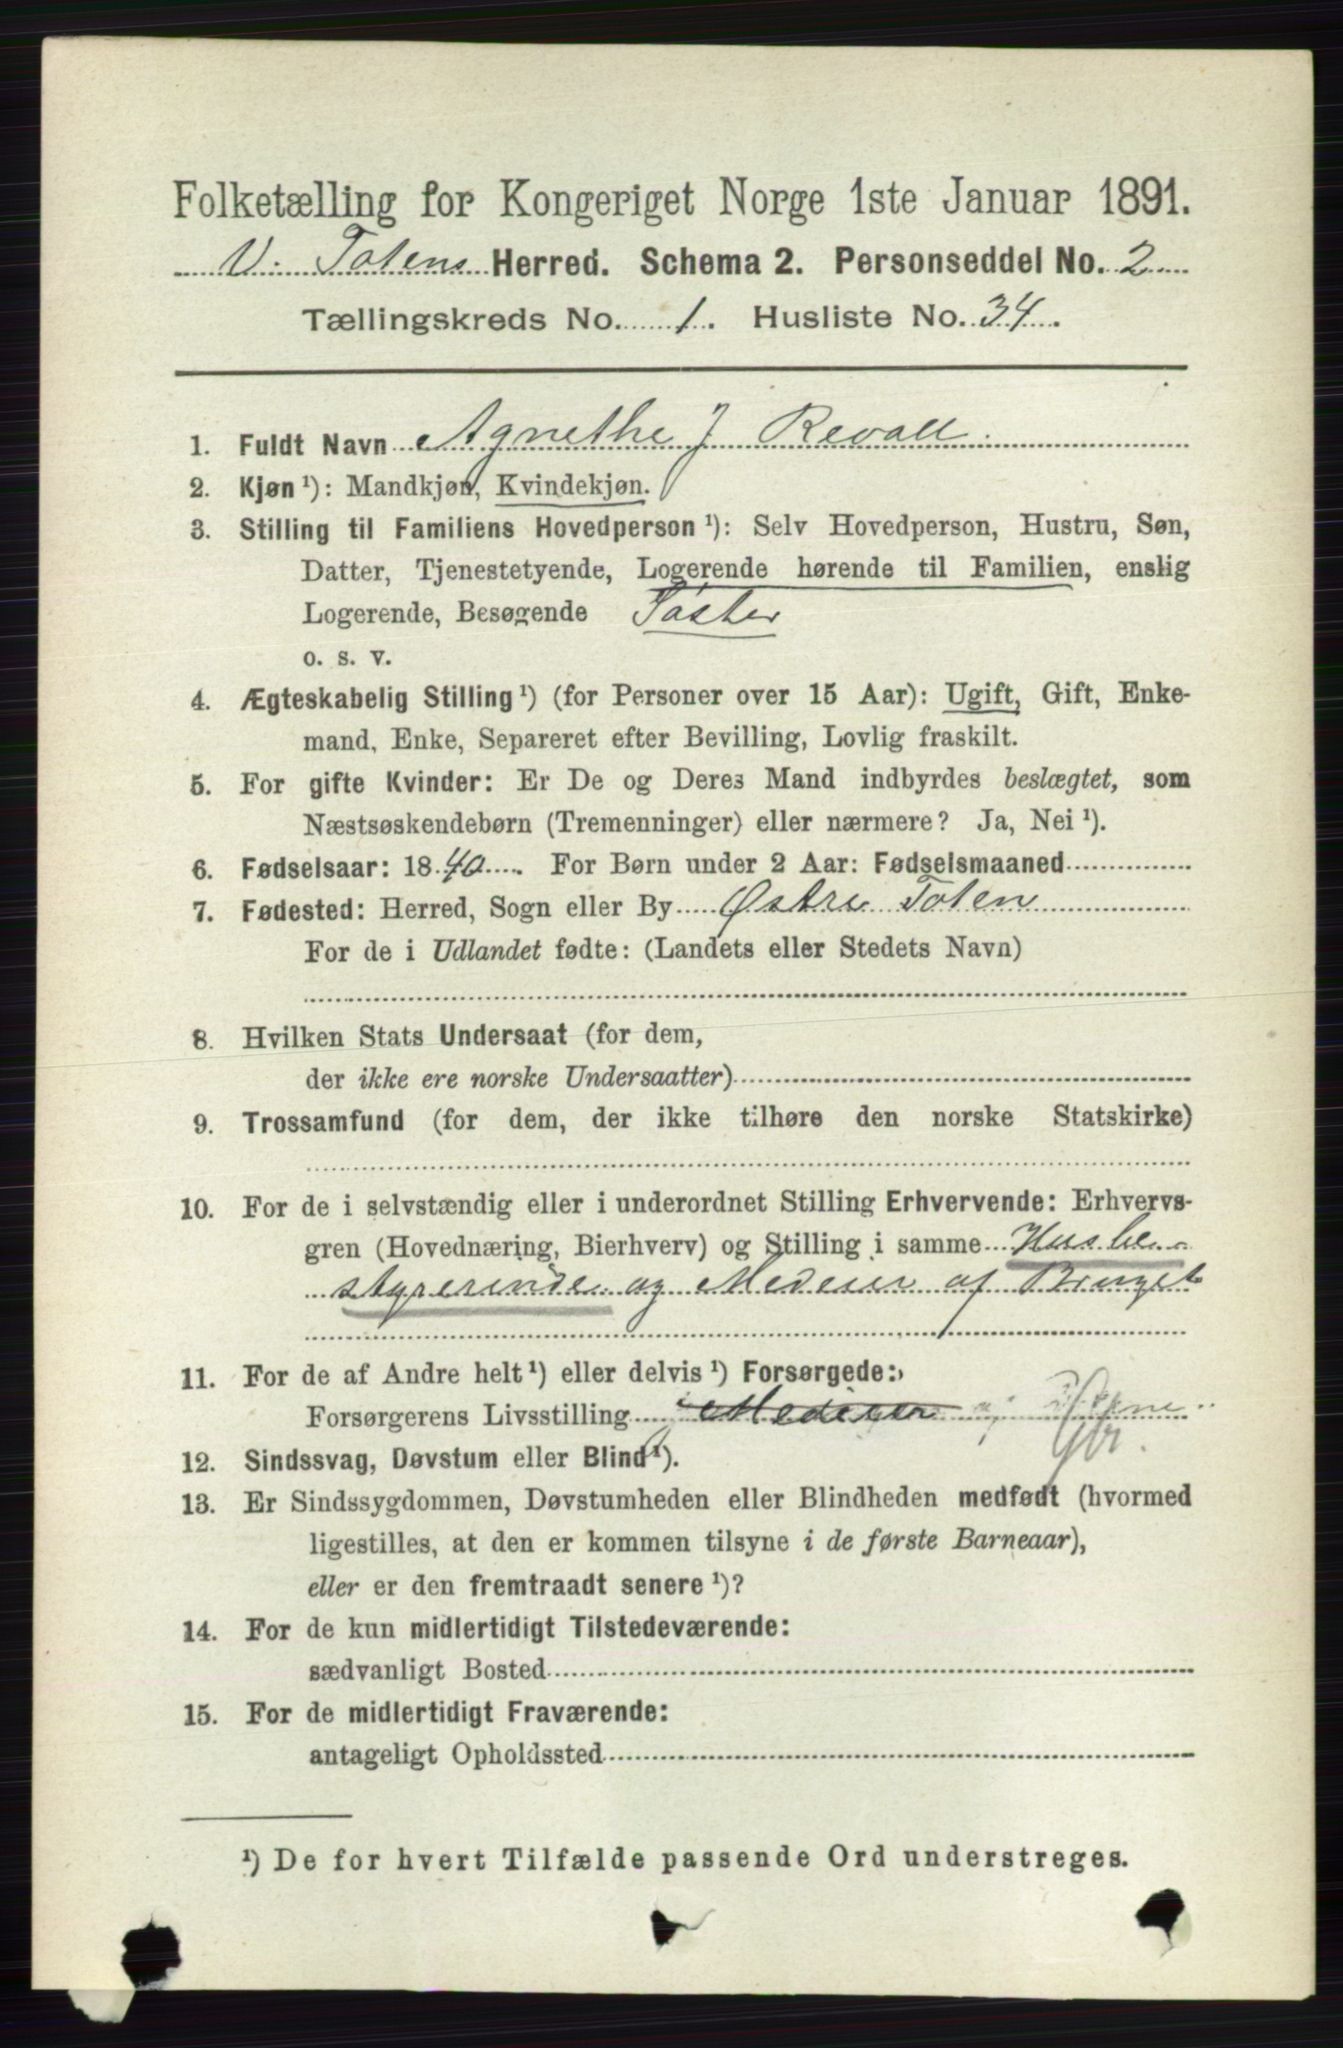 Folketælling for Kongeriget Norge 1ste Januar 1891.
V. Totens Herred. Schema 2. Personseddel No. 2
Tællingskreds No. 1. Husliste No. 34.
1. Fuldt Navn Agnethe J Revall
2. Kjøn ¹): Mandkjøn, Kvindekjøn.
3. Stilling til Familiens Hovedperson ¹): Selv Hovedperson, Hustru, Søn,
Datter, Tjenestetyende, Logerende hørende til Familien, enslig
Logerende, Besøgende Søster
o. s. v.
4. Ægteskabelig Stilling ¹) (for Personer over 15 Aar): Ugift, Gift, Enke-
mand, Enke, Separeret efter Bevilling, Lovlig fraskilt.
5. For gifte Kvinder: Er De og Deres Mand indbyrdes beslægtet, som
Næstsøskendebørn (Tremenninger) eller nærmere? Ja, Nei ¹).
6. Fødselsaar: 1840. For Børn under 2 Aar: Fødselsmaaned
7. Fødested: Herred, Sogn eller By Østre Toten
For de i Udlandet fødte: (Landets eller Stedets Navn)
8. Hvilken Stats Undersaat (for dem,
der ikke ere norske Undersaatter)
9. Trossamfund (for dem, der ikke tilhøre den norske Statskirke)
10. For de i selvstændig eller i underordnet Stilling Erhvervende: Erhvervs-
gren (Hovednæring, Bierhverv) og Stilling i samme Husbe-
styrerinde og Medeier af Bruget
11. For de af Andre helt ¹) eller delvis ¹) Forsørgede:
Forsørgerens Livsstilling Medeier
12. Sindssvag, Døvstum eller Blind ¹).
13. Er Sindssygdommen, Døvstumheden eller Blindheden medfødt (hvormed
ligestilles, at den er kommen tilsyne i de første Barneaar),
eller er den fremtraadt senere ¹)?
14. For de kun midlertidigt Tilstedeværende:
sædvanligt Bosted
15. For de midlertidigt Fraværende:
antageligt Opholdssted
¹) De for hvert Tilfælde passende Ord understreges.